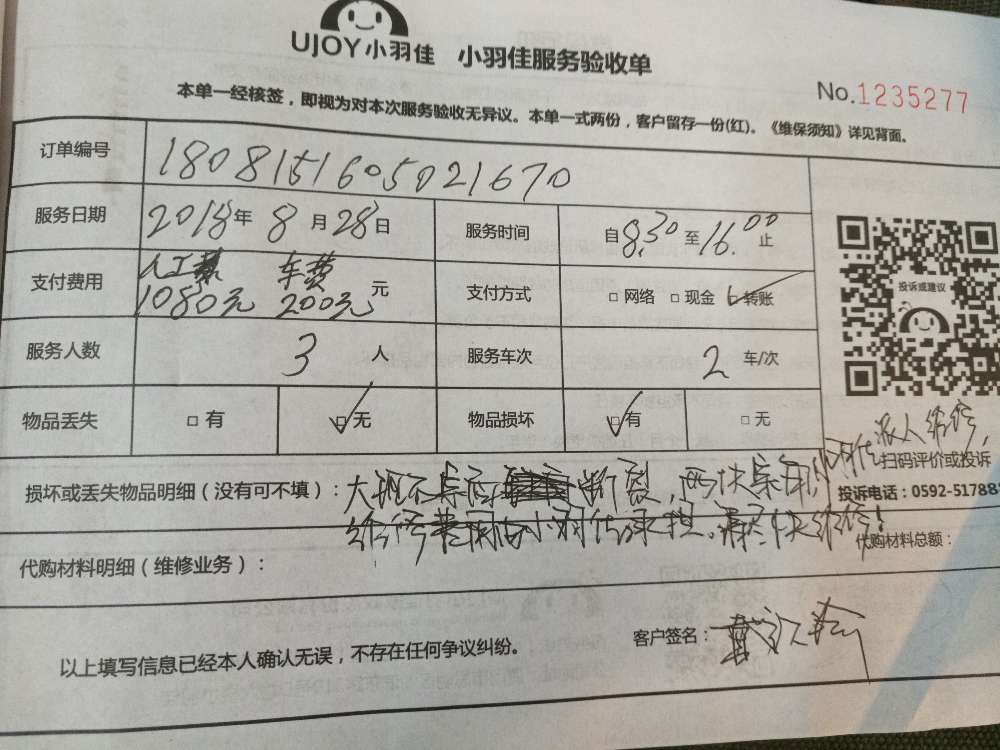 UJOY小羽佳 小羽佳服务验收单
No.1235277
本单一经核签，即视为对本次服务验收无异议。本单一式两份，客户留存一份(红)。《维保须知》详见背面。
订单编号 1808151605021670
服务日期 2018年 8 月 28日 服务时间 自8:30至16:00止
投诉或建议
支付费用 人工费 1080元 车费 200元 元 支付方式 □网络 □现金 转账
服务人数 3 人 服务车次 2 车/次
物品丢失 □有 □无 物品损坏 □有 □无
派人维修，
扫码评价或投诉
投诉电话：0592-51788
损坏或丢失物品明细（没有可不填）： 大班桌后 断裂，两块 小羽佳
维修费用由小羽佳承担。请尽快维修！
代购材料明细（维修业务）： 代购材料总额：
以上填写信息已经本人确认无误，不存在任何争议纠纷。 客户签名：